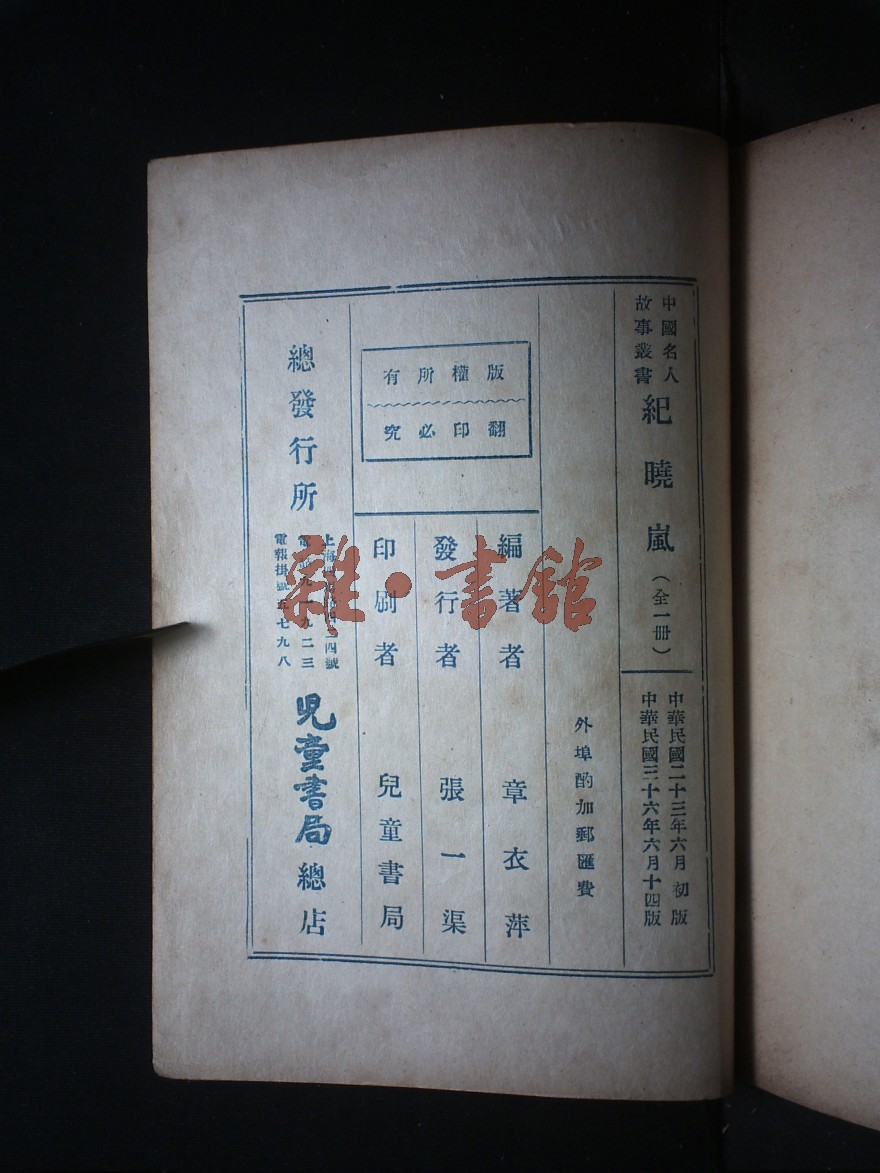 中國名人
故事叢書
紀曉嵐(全一冊)
中華民國二十三年六月初版
中華民國三十六年六月十四版
外埠酌加郵匯費
版權所有
翻印必究
編著者 章衣萍
發行者 張一渠
印刷者 兒童書局
總發行所
上海 四號
電 九一九二三
電報掛號五七九八
兒童書局總店
雜·書館